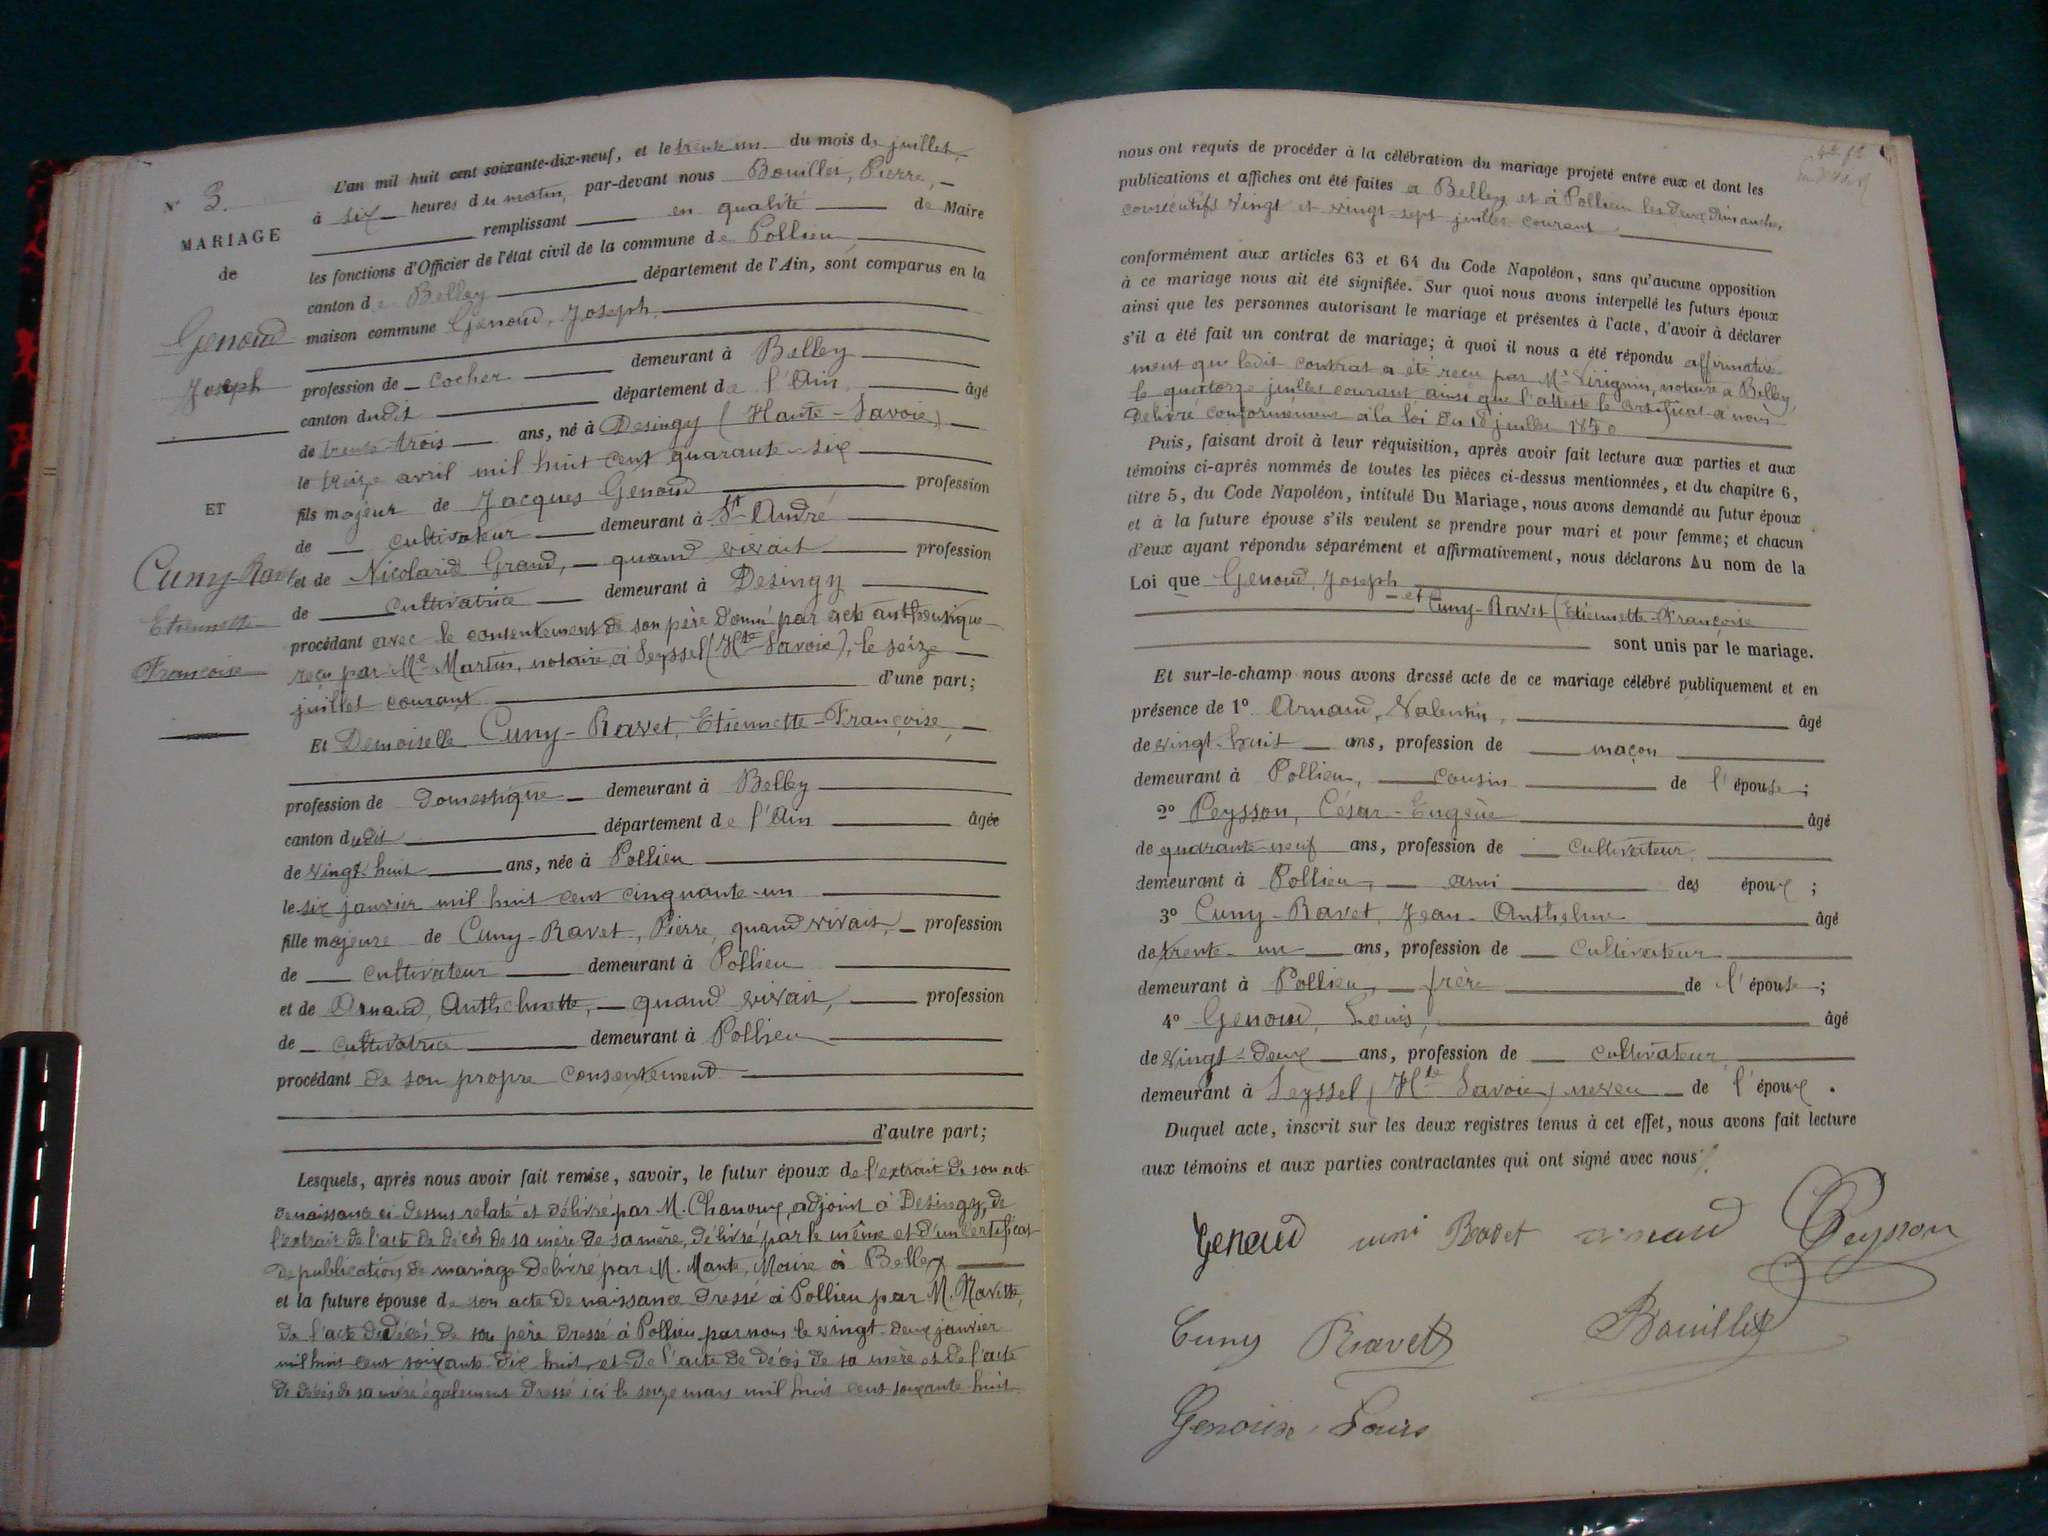 N° 3.
MARIAGE
de
Genoud
Joseph
ET
Cuny-Ravet
Etiennette
Françoise
L'an mil huit cent soixante-dix-neuf, et le trente un du mois de juillet,
à six heures du matin, par-devant nous Bouillet, Pierre,
remplissant en qualité de Maire
les fonctions d'Officier de l'état civil de la commune de Pollieu
canton de Belley département de l'Ain, sont comparus en la
maison commune Genoud, Joseph,
profession de cocher demeurant à Belley
canton dudit département de l'Ain âgé
de trente-trois ans, né à Desingy (Haute-Savoie)
le treize avril mil huit cent quarante-six
fils majeur de Jacques Genoud profession
de cultivateur demeurant à St André
et de Nicolarde Grand, quand vivait profession
de cultivatrice demeurant à Desingy
procédant avec le consentement de son père donné par acte authentique
reçu par Me Martin, notaire à Seyssel (Hte Savoie), le seize
juillet courant d'une part;
Et Demoiselle Cuny-Ravet, Etiennette-Françoise,
profession de domestique demeurant à Belley
canton dudit département de l'Ain âgée
de vingt-huit ans, née à Pollieu
le six janvier mil huit cent cinquante-un
fille majeure de Cuny-Ravet, Pierre, quand vivait, profession
de cultivateur demeurant à Pollieu
et de Arnaud, Anthelmette, quand vivait, profession
de cultivatrice demeurant à Pollieu
procédant de son propre consentement
d'autre part;
Lesquels, après nous avoir fait remise, savoir, le futur époux de l'extrait de son acte
de naissance ci dessus relaté et délivré par M. Chanoux, adjoint à Desingy, de
l'extrait de l'acte de décès de sa mère de sa mère, délivré par le même et d'un certificat
de publications de mariage délivré par M. Mante, Maire à Belley
et la future épouse de son acte de naissance dressé à Pollieu par M. Navette,
de l'acte de décès de son père dressé à Pollieu par nous le vingt-deux janvier
mil huit cent soixante-dix huit, et de l'acte de décès de sa mère et de l'acte
de décès de sa mère également dressé ici le seize mars mil huit cent soixante huit
nous ont requis de procéder à la célébration du mariage projeté entre eux et dont les
publications et affiches ont été faites à Belley et à Pollieu les deux dimanches
consécutifs vingt et vingt-sept juillet courant
conformément aux articles 63 et 64 du Code Napoléon, sans qu'aucune opposition
à ce mariage nous ait été signifiée. Sur quoi nous avons interpellé les futurs époux
ainsi que les personnes autorisant le mariage et présentes à l'acte, d'avoir à déclarer
s'il a été fait un contrat de mariage; à quoi il nous a été répondu affirmative
ment que ledit contrat a été reçu par Me Virignin, notaire à Belley,
le quatorze juillet courant ainsi que l'atteste le certificat à nous
délivré conformément à la loi du 18 juillet 1850
Puis, faisant droit à leur réquisition, après avoir fait lecture aux parties et aux
témoins ci-après nommés de toutes les pièces ci-dessus mentionnées, et du chapitre 6,
titre 5, du Code Napoléon, intitulé Du Mariage, nous avons demandé au futur époux
et à la future épouse s'ils veulent se prendre pour mari et pour femme; et chacun
d'eux ayant répondu séparément et affirmativement, nous déclarons Au nom de la
Loi que Genoud, Joseph
et Cuny-Ravet (Etiennette-Françoise
sont unis par le mariage.
Et sur-le-champ nous avons dressé acte de ce mariage célébré publiquement et en
présence de 1° Arnaud, Valentin, âgé
de vingt-huit ans, profession de maçon
demeurant à Pollieu, cousin de l'épouse;
2° Peysson, César-Eugène âgé
de quarante-neuf ans, profession de cultivateur
demeurant à Pollieu, ami des époux;
3° Cuny-Ravet, Jean-Anthelme âgé
de trente-un ans, profession de cultivateur
demeurant à Pollieu, frère de l'épouse;
4° Genoud, Louis, âgé
de vingt-deux ans, profession de cultivateur
demeurant à Seyssel (Hte Savoie) neveu de l'époux.
Duquel acte, inscrit sur les deux registres tenus à cet effet, nous avons fait lecture
aux témoins et aux parties contractantes qui ont signé avec nous.
Genoud Ravet arnaud Peysson
Cuny Ravet Bouillet
Genoud Louis